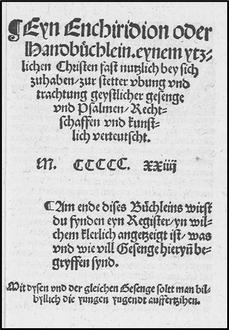 ¶Eyn Enchiridion oder
Handbüchlein. eynem ytz-
lichen Christen fast nutzlich bey sich
zuhaben / zur stetter vbung vnd
trachtung geystlicher gesenge
vnd Psalmen / Recht-
schaffen vnd kunst-
lich verteutscht.
M. CCCCC. XXiiij
¶Am ende dises Büchleins wirst
du fynden eyn Register / yn wil-
chem klerlich angetzeigt ist / was
vnd wie vill Gesenge hieryn̄ be-
gryffen synd.
Mit dysen vnd der gleichen Gesenge soltt man bil-
byllich die yungen yugendt aufferzihen.